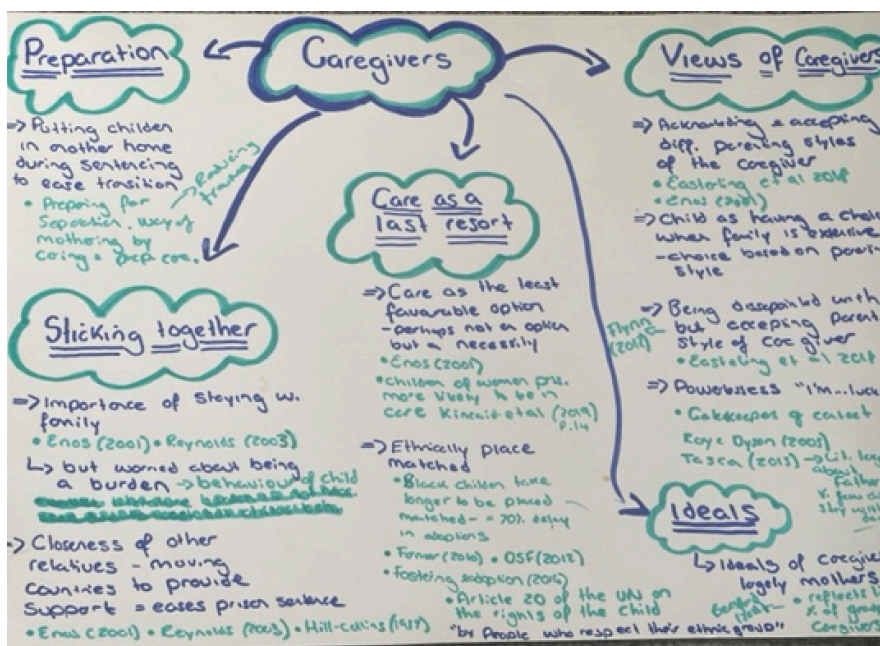 Caregivers
Preparation
=> Putting childen
in another home
during sentencing
to ease transition
→ Reducing
trauma
• Preparing for
Separation, way of
mothering by
Sticking together
=> Importance of staying w.
family
• Enos (2001) • Reynolds (2003)
↳ but worried about being
a burden → behaviour of child
=> Closeness of other
relatives - moving
countries to provide
support = eases prison sentence
• Enos (2001) • Reynolds (2003) • Hill-Collins
Care as a
last resort
=> Care as the least
favorable option
- perhaps not an option
but a necessity
• Enos (2001)
• children of women pris.
more likely to be in
care Kincaid et al (2019)
P.14
=> Ethnically place
matched
• Black childen take
longer to be placed
matched - = 70% delay
in adoptions
• (2010) • OSF (2012)
• fostering adoption
• Article 20 of the UN on
the rights of the child
"by People who respect their ethnic group"
Views of Caregivers
=> & accepting
diff. parenting styles
of the caregiver
• Easterling et al
• Enos (2001)
=> Child as having a
when family is
- choice based on
style
=> Being with
but accepting
style of caregiver
Flynn
• et al
=> "I'm...
• Gatekeeper of contact
Kaye Dyson
Tasca → Lit.
about
Father
Ideals
↳ Ideals of
largely mothers
• reflects
% of